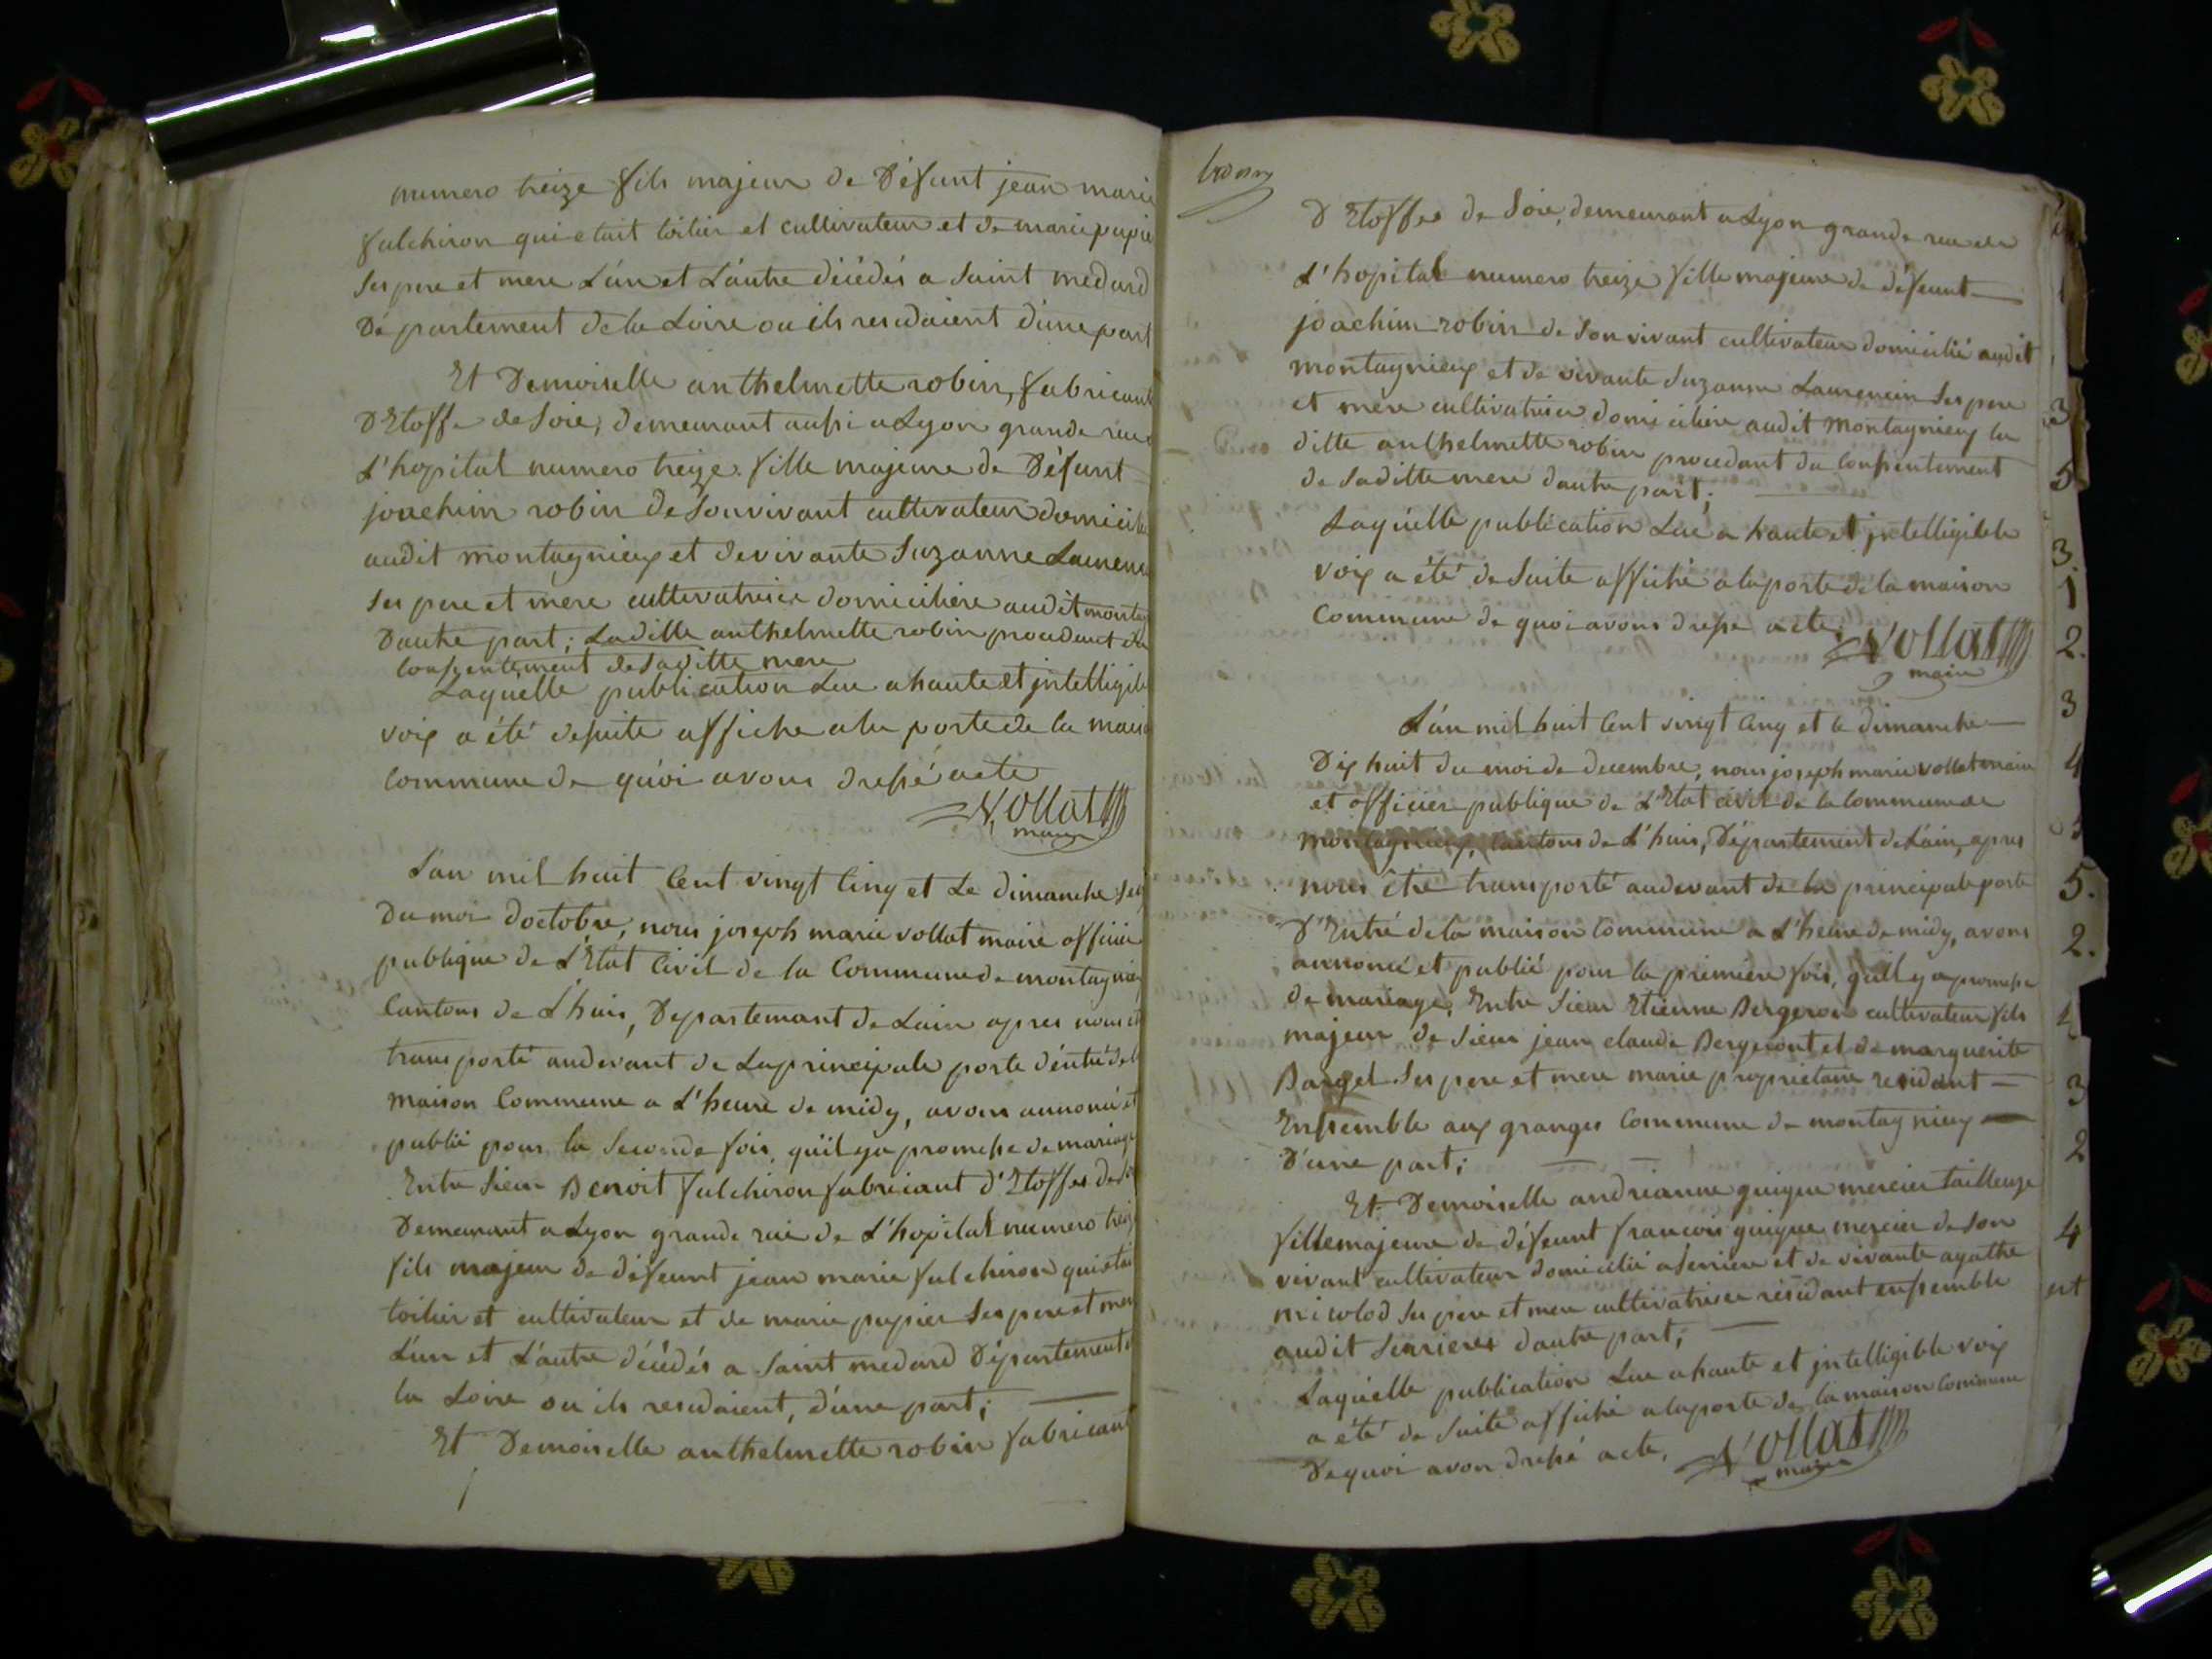 numero treize fils majeur de Défunt jean marie
fulchiron qui etait toilier et cultivateur et de marie pupier
ses pere et mere L'un et L'autre décédés a Saint medard
Département de la Loire ou ils residaient d'une part
Et Demoiselle anthelmette robin, fabricant
D'Etoffe de Soie, demeurant aussi a Lyon grande rue
L'hopital numero treize. fille majeure de Défunt
joachim robin de Son vivant cultivateur domicilié
audit montagnieux et de vivante Suzanne
ses pere et mere cultivatrice domiciliere audit
D'autre part; Laditte anthelmette robin procedant du
consentement de Saditte mere
Laquelle publication Lue a haute et jntelligible
voix a été desuite affiche a la porte de la maison
commune de quoi avons dressé acte
Vollat
maire
L'an mil huit Cent vingt Cinq et Le dimanche
Du moi d'octobre, nous joseph marie vollat maire officier
publique de L'Etat Civil de la Commune de montagnieu
Cantons de L'huis, Departemant de Lain apres nous
transporté audevant de La principale porte d'entré de
maison Commune a L'heure de midy, avons annoncé et
publié pour la Seconde fois, qu'il ya promesse de mariage
Entre Sieur Benoit fulchiron fabricant d'Etoffes de
Demeurant a Lyon grande rue de L'hopital numero treize
fils majeur de défeunt jean marie fulchiron qui etait
toilier et cultivateur et de marie pupier Ses pere et mere
L'un et L'autre décédés a Saint medard Département
la Loire ou ils residaient, d'une part;
Et Demoiselle anthelmette robin fabricant
D'Etoffes de Soie, demeurant a Lyon grande rue de
L'hopital numero treize fille majeure de défeunt
joachim robin de Son vivant cultivateur domicilié audit
montagnieux et de vivante Suzanne Laurencin Ses pere
et mere cultivatrice domiciliere audit montagnieux la
ditte anthelmette robin procedant du Consentement
de Saditte mere d'autre part;
Laquelle publication Lue a haute et jntelligible
voix a été de Suite affiché a la porte de la maison
Commune de quoi avons dressé acte
Vollat
maire
L'an mil huit Cent vingt Cinq et le dimanche
Dix huit du moi de decembre, nous joseph marie vollat maire
et officier publique de L'Etat civil de la Commune de
montagnieux, Cantons de L'huis, Département de Lain, apres
nous étre transporté audevant de la principale porte
D'Entré de la maison Commune a L'heure de midy, avons
annoncé et publié pour la premiere fois, qu'il ya promesse
de mariage, Entre Sieur Etienne Bergeron cultivateur fils
majeur de Sieur jean claude Bergeront et de marguerite
Barget Ses pere et mere marie proprietaire residant
Ensemble aux granges Commune de montagnieux
D'une part;
Et Demoiselle andrianne guigue mercier tailleuze
fille majeure de défeunt francois guigue mercier de Son
vivant cultivateur domicilié a Serriere et de vivante agathe
micolod Ses pere et mere cultivatrice résidant ensemble
audit Serrieres d'autre part;
Laquelle publication Lue a haute et jntelligible voix
a été de Suite affiché a la porte de la maison Commune
De quoi avon dressé acte,
Vollat
maire
3
5
3.
1
2.
3
4
5
5.
2.
4
3
2
4